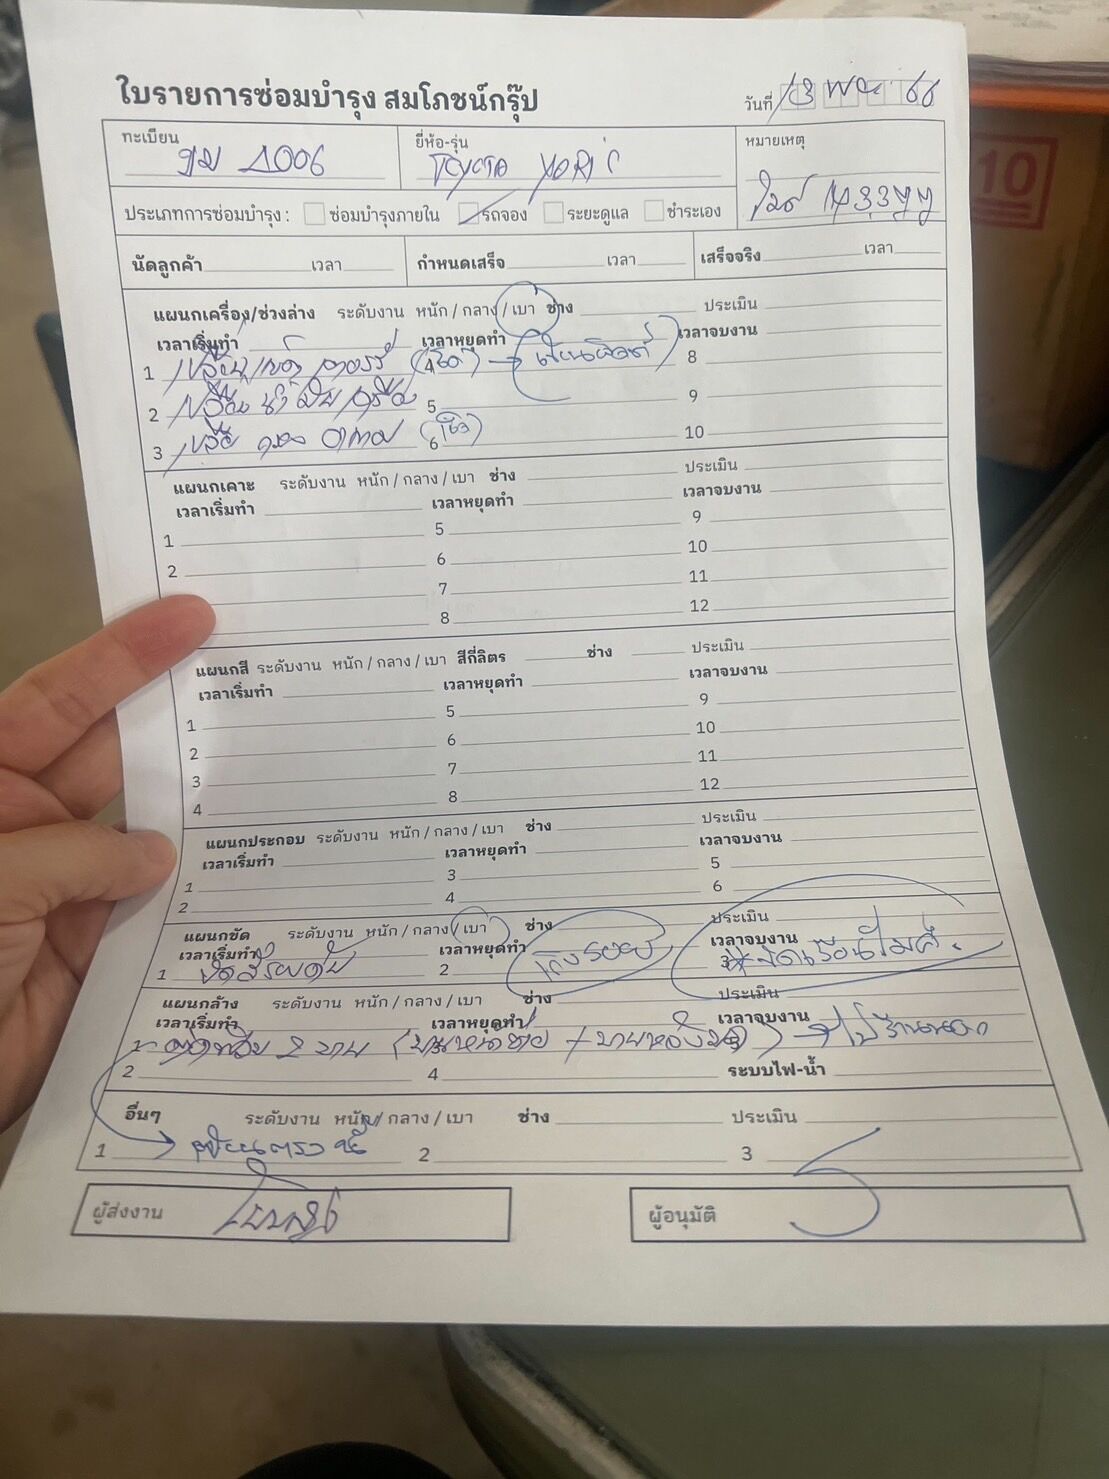 ใบรายการซ่อมบำรุง สมโภชน์กรุ๊ป
วันที่ 13 พย 66
ทะเบียน ยี่ห้อ-รุ่น หมายเหตุ
1006 TOYOTA YARIS
ไมล์
ประเภทการซ่อมบำรุง : ซ่อมบำรุงภายใน รถจอง ระยะดูแล ชำระเอง
นัดลูกค้า เวลา กำหนดเสร็จ เวลา เสร็จจริง เวลา
แผนกเครื่อง/ช่วงล่าง ระดับงาน หนัก / กลาง / เบา ช่าง ประเมิน
เวลาเริ่มทำ เวลาหยุดทำ เวลาจบงาน
1 4 8
2 เปลี่ยน น้ำมันเครื่อง 5 9
3 6 10
แผนกเคาะ ระดับงาน หนัก / กลาง / เบา ช่าง ประเมิน
เวลาเริ่มทำ เวลาหยุดทำ เวลาจบงาน
1 5 9
2 6 10
7 11
8 12
แผนกสี ระดับงาน หนัก / กลาง / เบา สีกี่ลิตร ช่าง ประเมิน
เวลาเริ่มทำ เวลาหยุดทำ เวลาจบงาน
1 5 9
2 6 10
3 7 11
4 8 12
แผนกประกอบ ระดับงาน หนัก / กลาง / เบา ช่าง ประเมิน
เวลาเริ่มทำ เวลาหยุดทำ เวลาจบงาน
1 3 5
2 4 6
แผนกขัด ระดับงาน หนัก / กลาง / เบา ช่าง ประเมิน
เวลาเริ่มทำ เวลาหยุดทำ เวลาจบงาน
1 ขัดสีรอบคัน 2 เก็บรอย 3
แผนกล้าง ระดับงาน หนัก / กลาง / เบา ช่าง ประเมิน
เวลาเริ่มทำ เวลาหยุดทำ เวลาจบงาน
1 2 บาน → ไปร้านนอก
2 4 ระบบไฟ-น้ำ
อื่นๆ ระดับงาน หนัก / กลาง / เบา ช่าง ประเมิน
1 2 3
ผู้ส่งงาน ผู้อนุมัติ
10